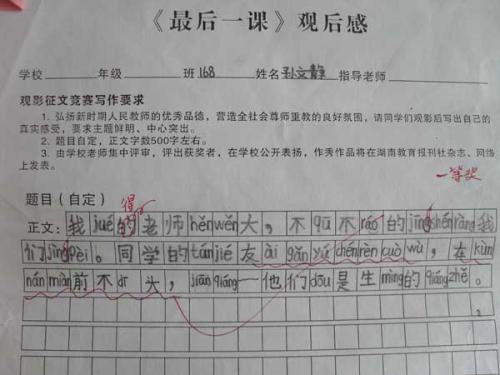 《最后一课》观后感
学校 年级 班168 姓名 孙文静 指导老师
观影征文竞赛写作要求
1. 弘扬新时期人民教师的优秀品德，营造全社会尊师重教的良好氛围，请同学们观影后写出自己的
真实感受，要求主题鲜明、中心突出。
2. 题目自定，正文字数500字左右。
3. 由学校老师集中评审，评出获奖者，在学校公开表扬，作秀作品将在湖南教育报刊社杂志、网络
上发表。
一等奖
题目（自定）
得
正文：我jué的老师hěnwěn大，不qū不ráo的jīngshénràng我
们jìngpèi。同学的tuánjié友ài gǎnyú chénrèncuòwù，在kùn
nánmiàn前不dī头，jiānqiáng—他们dōu是生mìng的qiángzhě。